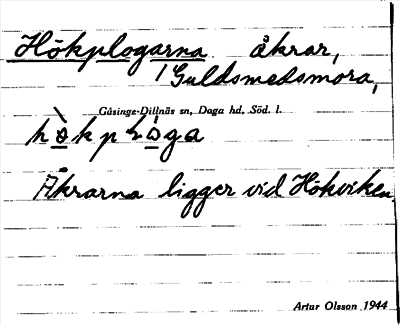 Hökplogarna åkrar,
/ Guldsmedsmora,
Gåsinge-Dillnäs sn, Daga hd, Söd. l.
Åkrarna ligger vid Hökviken.
Artur Olsson 1944